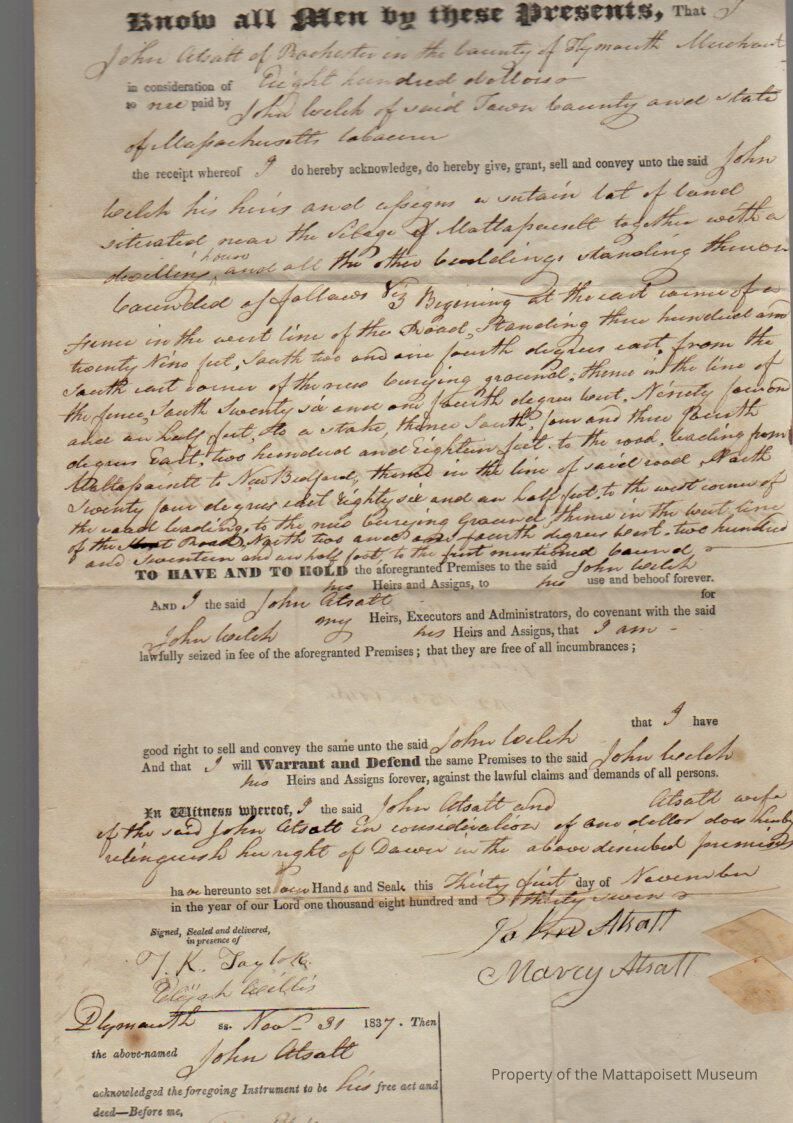 Know all Men by these Presents, That I
John Atsatt of Rochester in the County of Plymouth Merchant
in consideration of Eight hundred dollars
to me paid by John Welch of said Town County and state
of Massachusetts
the receipt whereof I do hereby acknowledge, do hereby give, grant, sell and convey unto the said John
Welch his heirs and assigns a certain lot of land
situated near the Vilage of Mattapoisett together with a
dwelling house and all the other buildings standing thereon
bounded as follows Viz Begining at the east corner of a
fence in the west line of the Road, Standing three hundred and
twenty Nine feet, South two and one fourth degrees east, from the
South east corner of the new burying ground; thence in the line of
the fence, South Seventy six and one fourth degrees West, Ninety four
and an half feet, to a stake thence South, four and three fourth
degrees East, two hundred and Eighteen feet to the road, leading from
Mattapoisett to New Bedford, thence in the line of said road, North
Seventy four degrees east Eighty six and an half feet, to the west corner of
the road leading, to the new burying Ground, thence in the west line
of the Road, North two and one fourth degrees West, two hundred
and Seventeen and an half feet, to the first mentioned bound,
TO HAVE AND TO HOLD the aforegranted Premises to the said John Welch
his Heirs and Assigns, to his use and behoof forever.
AND I the said John Atsatt for
my Heirs, Executors and Administrators, do covenant with the said
John Welch his Heirs and Assigns, that I am
lawfully seized in fee of the aforegranted Premises; that they are free of all incumbrances;
that I have
good right to sell and convey the same unto the said John Welch
And that I will Warrant and Defend the same Premises to the said John Welch
his Heirs and Assigns forever, against the lawful claims and demands of all persons.
In Witness whereof, I the said John Atsatt and Atsatt wife
of the said John Atsatt in consideration of one dollar does hereby
relinquish her right of Dower in the above described premises
have hereunto set our Hands and Seals this Thirty first day of November
in the year of our Lord one thousand eight hundred and thirty seven
Signed, Sealed and delivered,
in presence of
John Atsatt
T. K. Taylor
Marcy Atsatt
Elijah Willis
Plymouth ss. Nov 31 1837. Then
the above-named John Atsatt
acknowledged the foregoing Instrument to be his free act and
deed—Before me,
Property of the Mattapoisett Museum